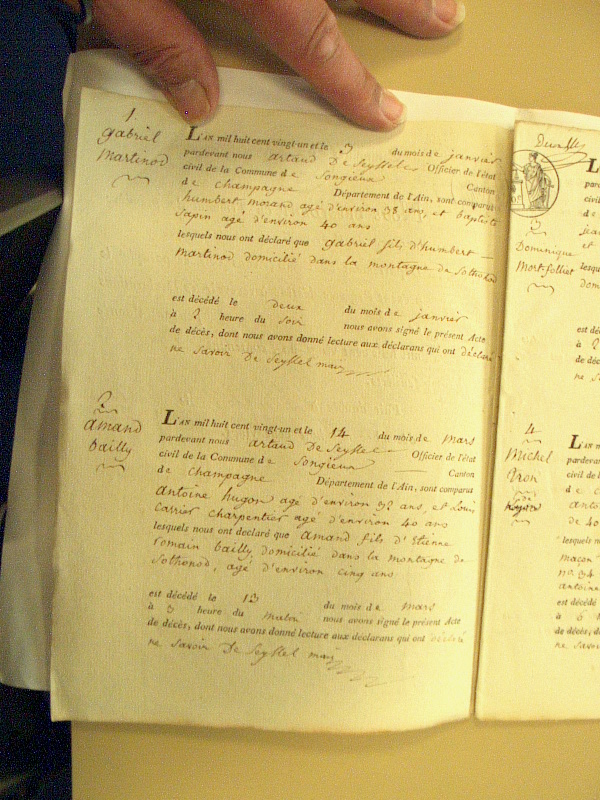 1.
gabriel
martinod
L'AN mil huit cent vingt-un et le 3 du mois de janvier
pardevant nous artaud De Seyssel Officier de l'état
civil de la Commune de Songieux Canton
de champagne Département de l'Ain, sont comparus
humbert morand agé d'environ 38 ans, et baptiste
Sapin agé d'environ 40 ans
lesquels nous ont déclaré que gabriel fils d'humbert
martinod domicilié dans la montagne de Sothonod
est décédé le deux du mois de janvier
à 2 heure du Soir nous avons signé le présent Acte
de décès, dont nous avons donné lecture aux déclarans qui ont déclaré
ne Savoir De Seyssel mair
2
amand
bailly
L'AN mil huit cent vingt-un et le 14 du mois de mars
pardevant nous artaud De Seyssel Officier de l'état
civil de la Commune de Songieux Canton
de champagne Département de l'Ain, sont comparus
antoine hugon agé d'environ 32 ans, et Louis
Carrier charpentier agé d'environ 40 ans
lesquels nous ont déclaré que amand fils d'Etienne
romain bailly, domicilié dans la montagne de
Sothonod, agé d'environ cinq ans
est décédé le 13 du mois de mars
à 3 heure du matin nous avons signé le présent Acte
de décès, dont nous avons donné lecture aux déclarans qui ont déclaré
ne Savoir De Seyssel mair
3
Dominique
Mort-follies
4
Michel
de 40
lesquels
maçon
no. 34
antoine
est décédé
à 6
de décès, d
ne Savoir